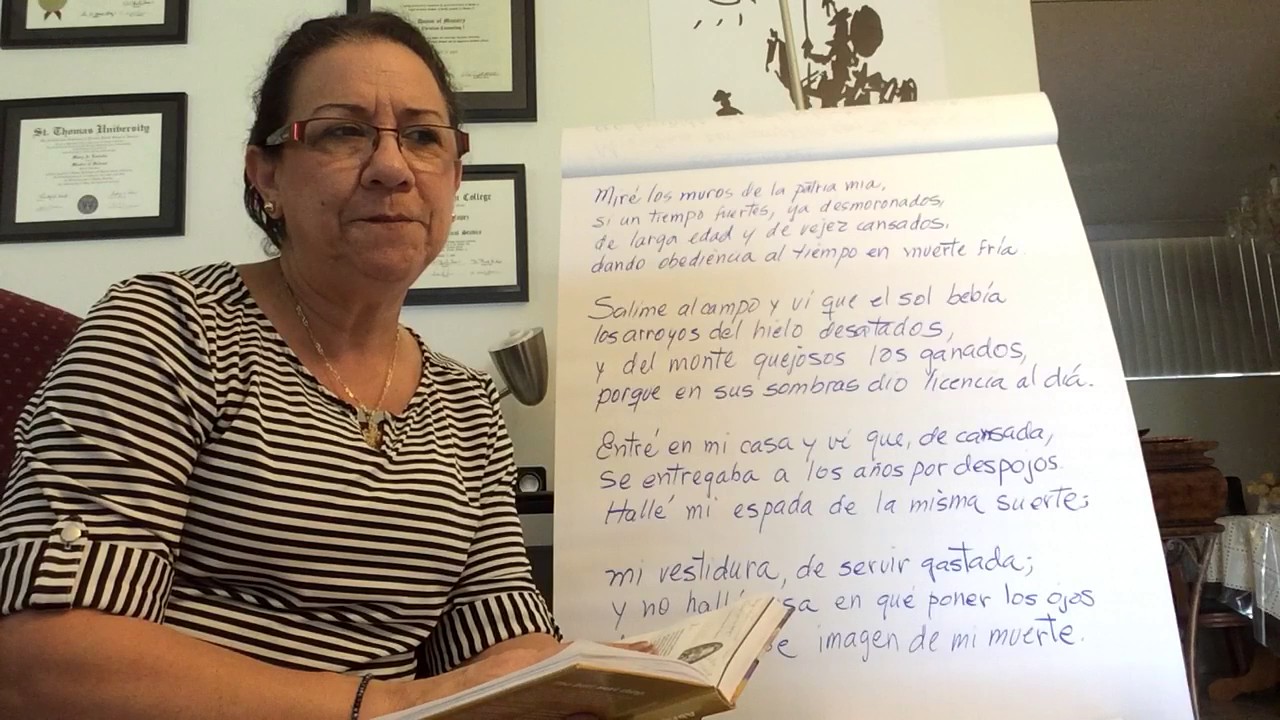 Doctor of Ministry
St. Thomas University
College
Miré los muros de la patria mia,
si un tiempo fuertes, ya desmoronados,
de larga edad y de vejez cansados,
dando obediencia al tiempo en muerte fría.
Salíme al campo y vi que el sol bebía
los arroyos del hielo desatados,
y del monte quejosos los ganados,
porque en sus sombras dio licencia al día.
Entré en mi casa y vi que, de cansada,
se entregaba a los años por despojos.
Hallé mi espada de la misma suerte;
mi vestidura, de servir gastada;
y no hallé en qué poner los ojos
imagen de mi muerte.